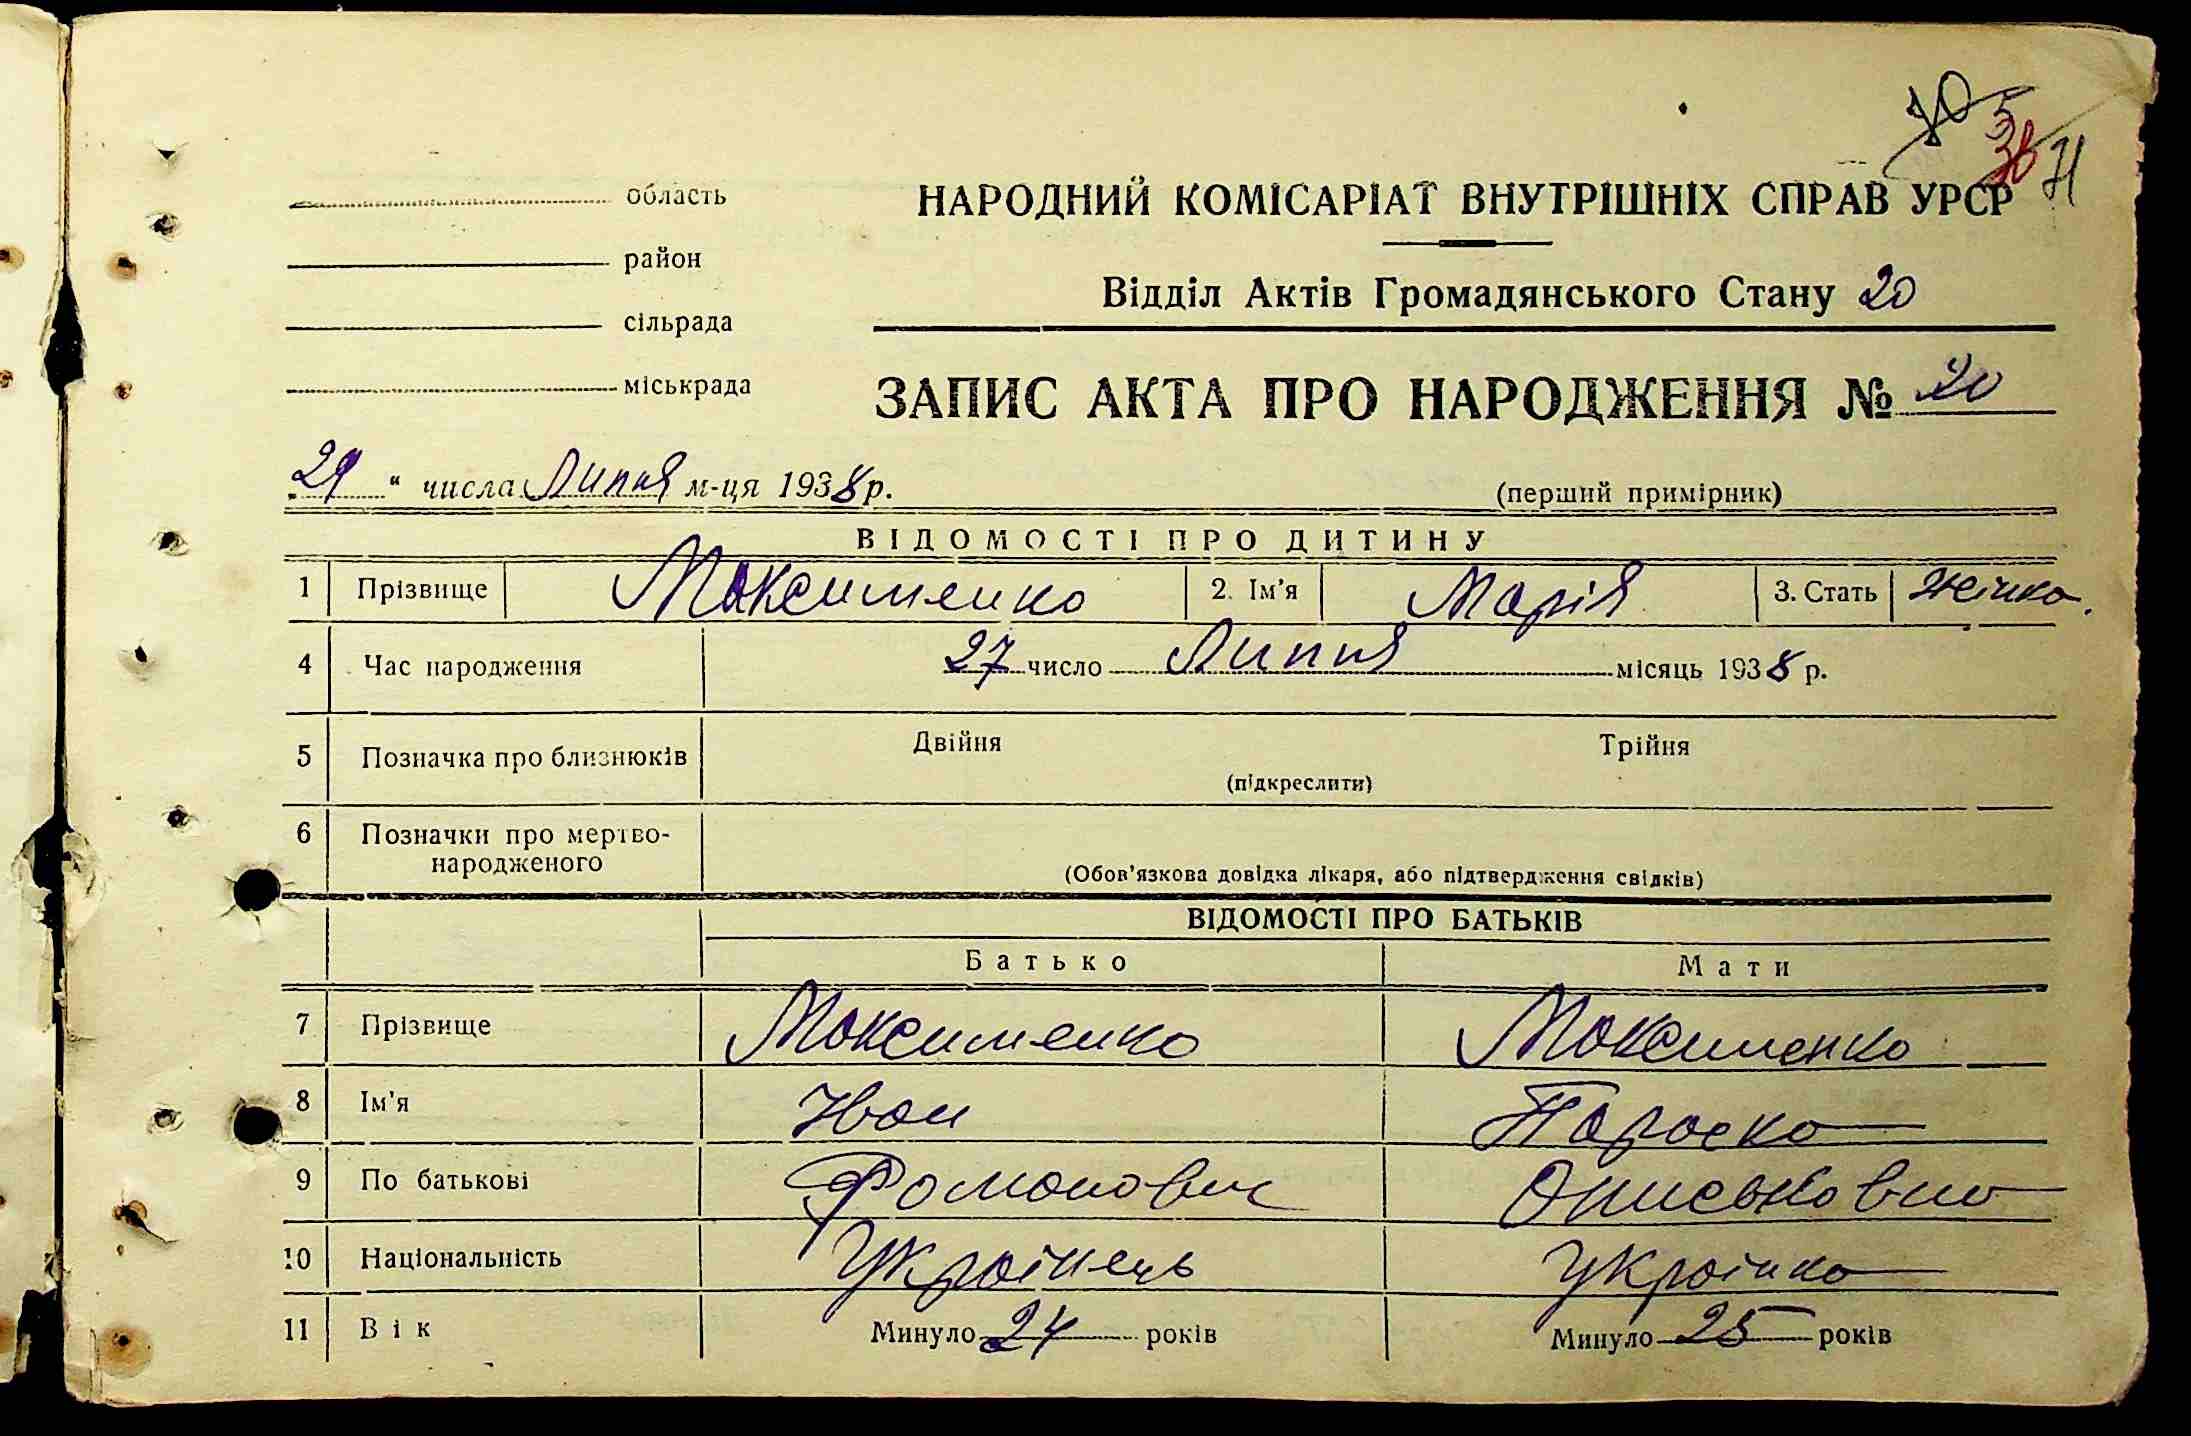 70 5 36 71
область
НАРОДНИЙ КОМІСАРІАТ ВНУТРІШНІХ СПРАВ УРСР
район
Відділ Актів Громадянського Стану 20
сільрада
міськрада
ЗАПИС АКТА ПРО НАРОДЖЕННЯ № 20
"29" числа Липня м-ця 1938 р.
(перший примірник)
ВІДОМОСТІ ПРО ДИТИНУ
1 Прізвище Максименко 2. Ім'я Марія 3. Стать Жінка.
4 Час народження 27 число Липня місяць 1938 р.
5 Позначка про близнюків Двійня Трійня
(підкреслити)
6 Позначки про мертво-
народженого
(Обов'язкова довідка лікаря, або підтвердження свідків)
ВІДОМОСТІ ПРО БАТЬКІВ
Батько Мати
7 Прізвище Максименко Максименко
8 Ім'я Іван Параска
9 По батькові Романович Ониськовна
10 Національність Українець Українка
11 Вік Минуло 24 років Минуло 25 років